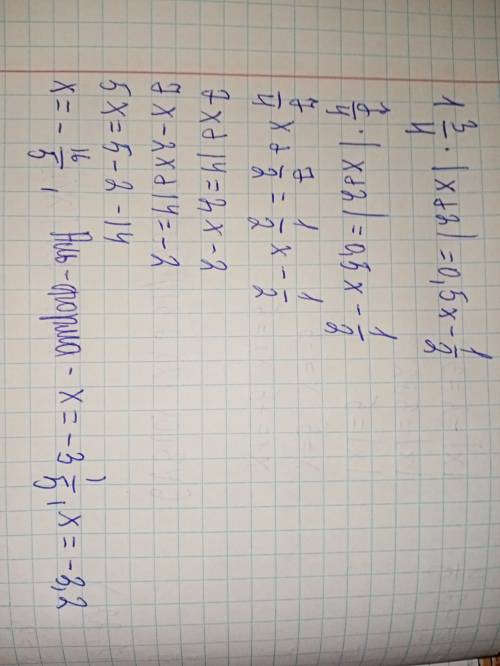 1 3/4 · |x+2| = 0,5x - 1/2
7/4 · |x+2| = 0,5x - 1/2
7/4 x + 7/2 = 1/2 x - 1/2
7x + 14 = 2x - 2
7x - 2x + 14 = -2
5x = 5 - 2 - 14
x = - 16/5, - форма - x = -3 1/5, x = -3,2